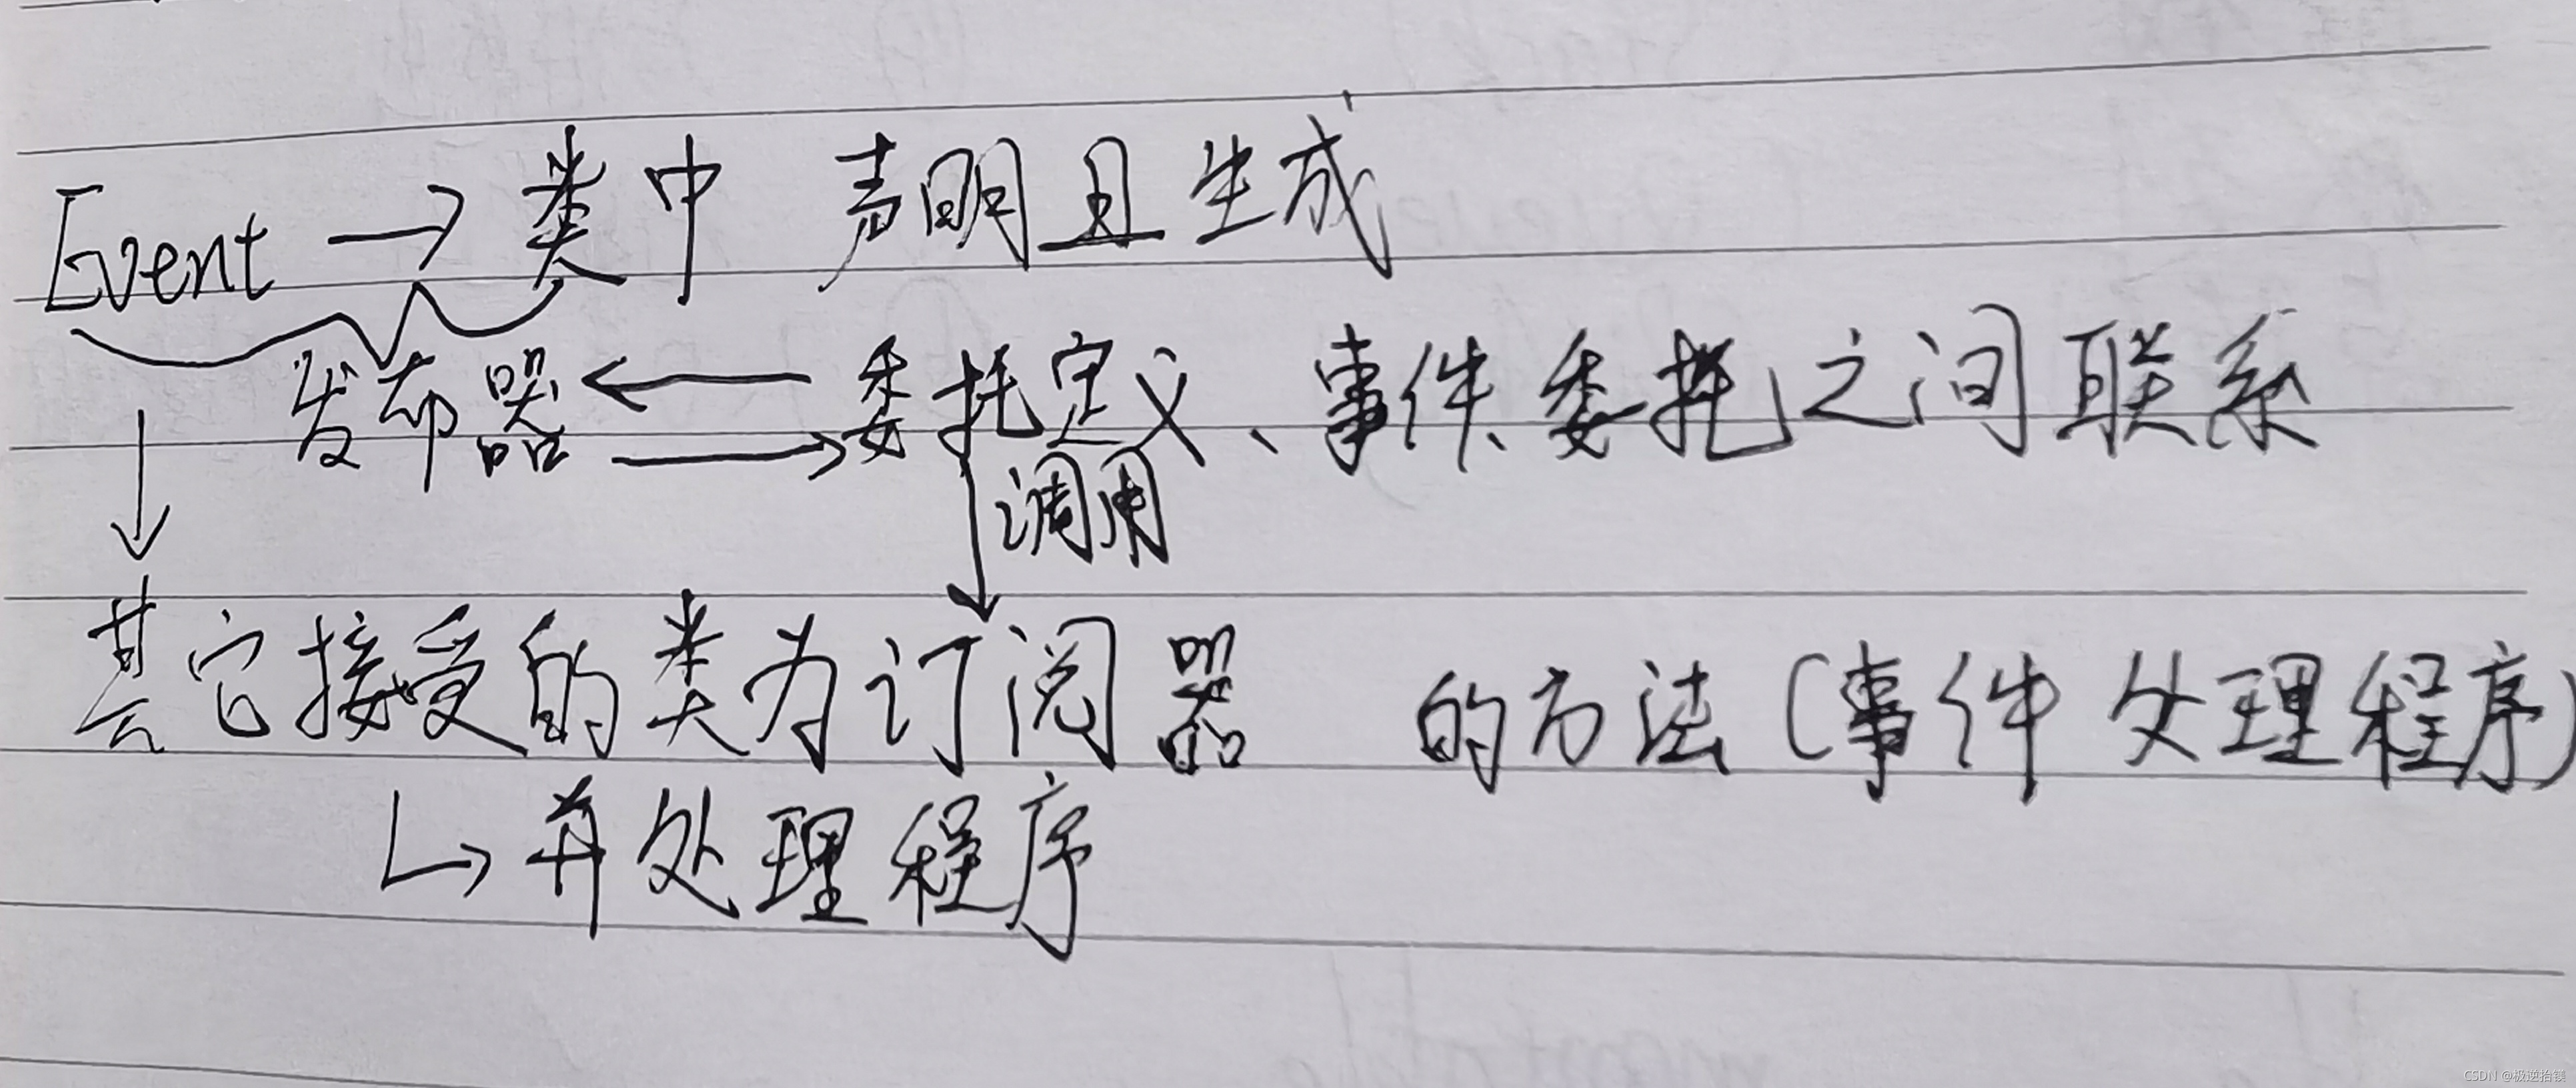 Event → 类中 声明且生成
发布器 ← → 委托定义、事件委托之间联系
↓ 调用
其它接受的类为订阅器 的方法(事件处理程序)
↳ 并处理程序
CSDN @极逆抬镁